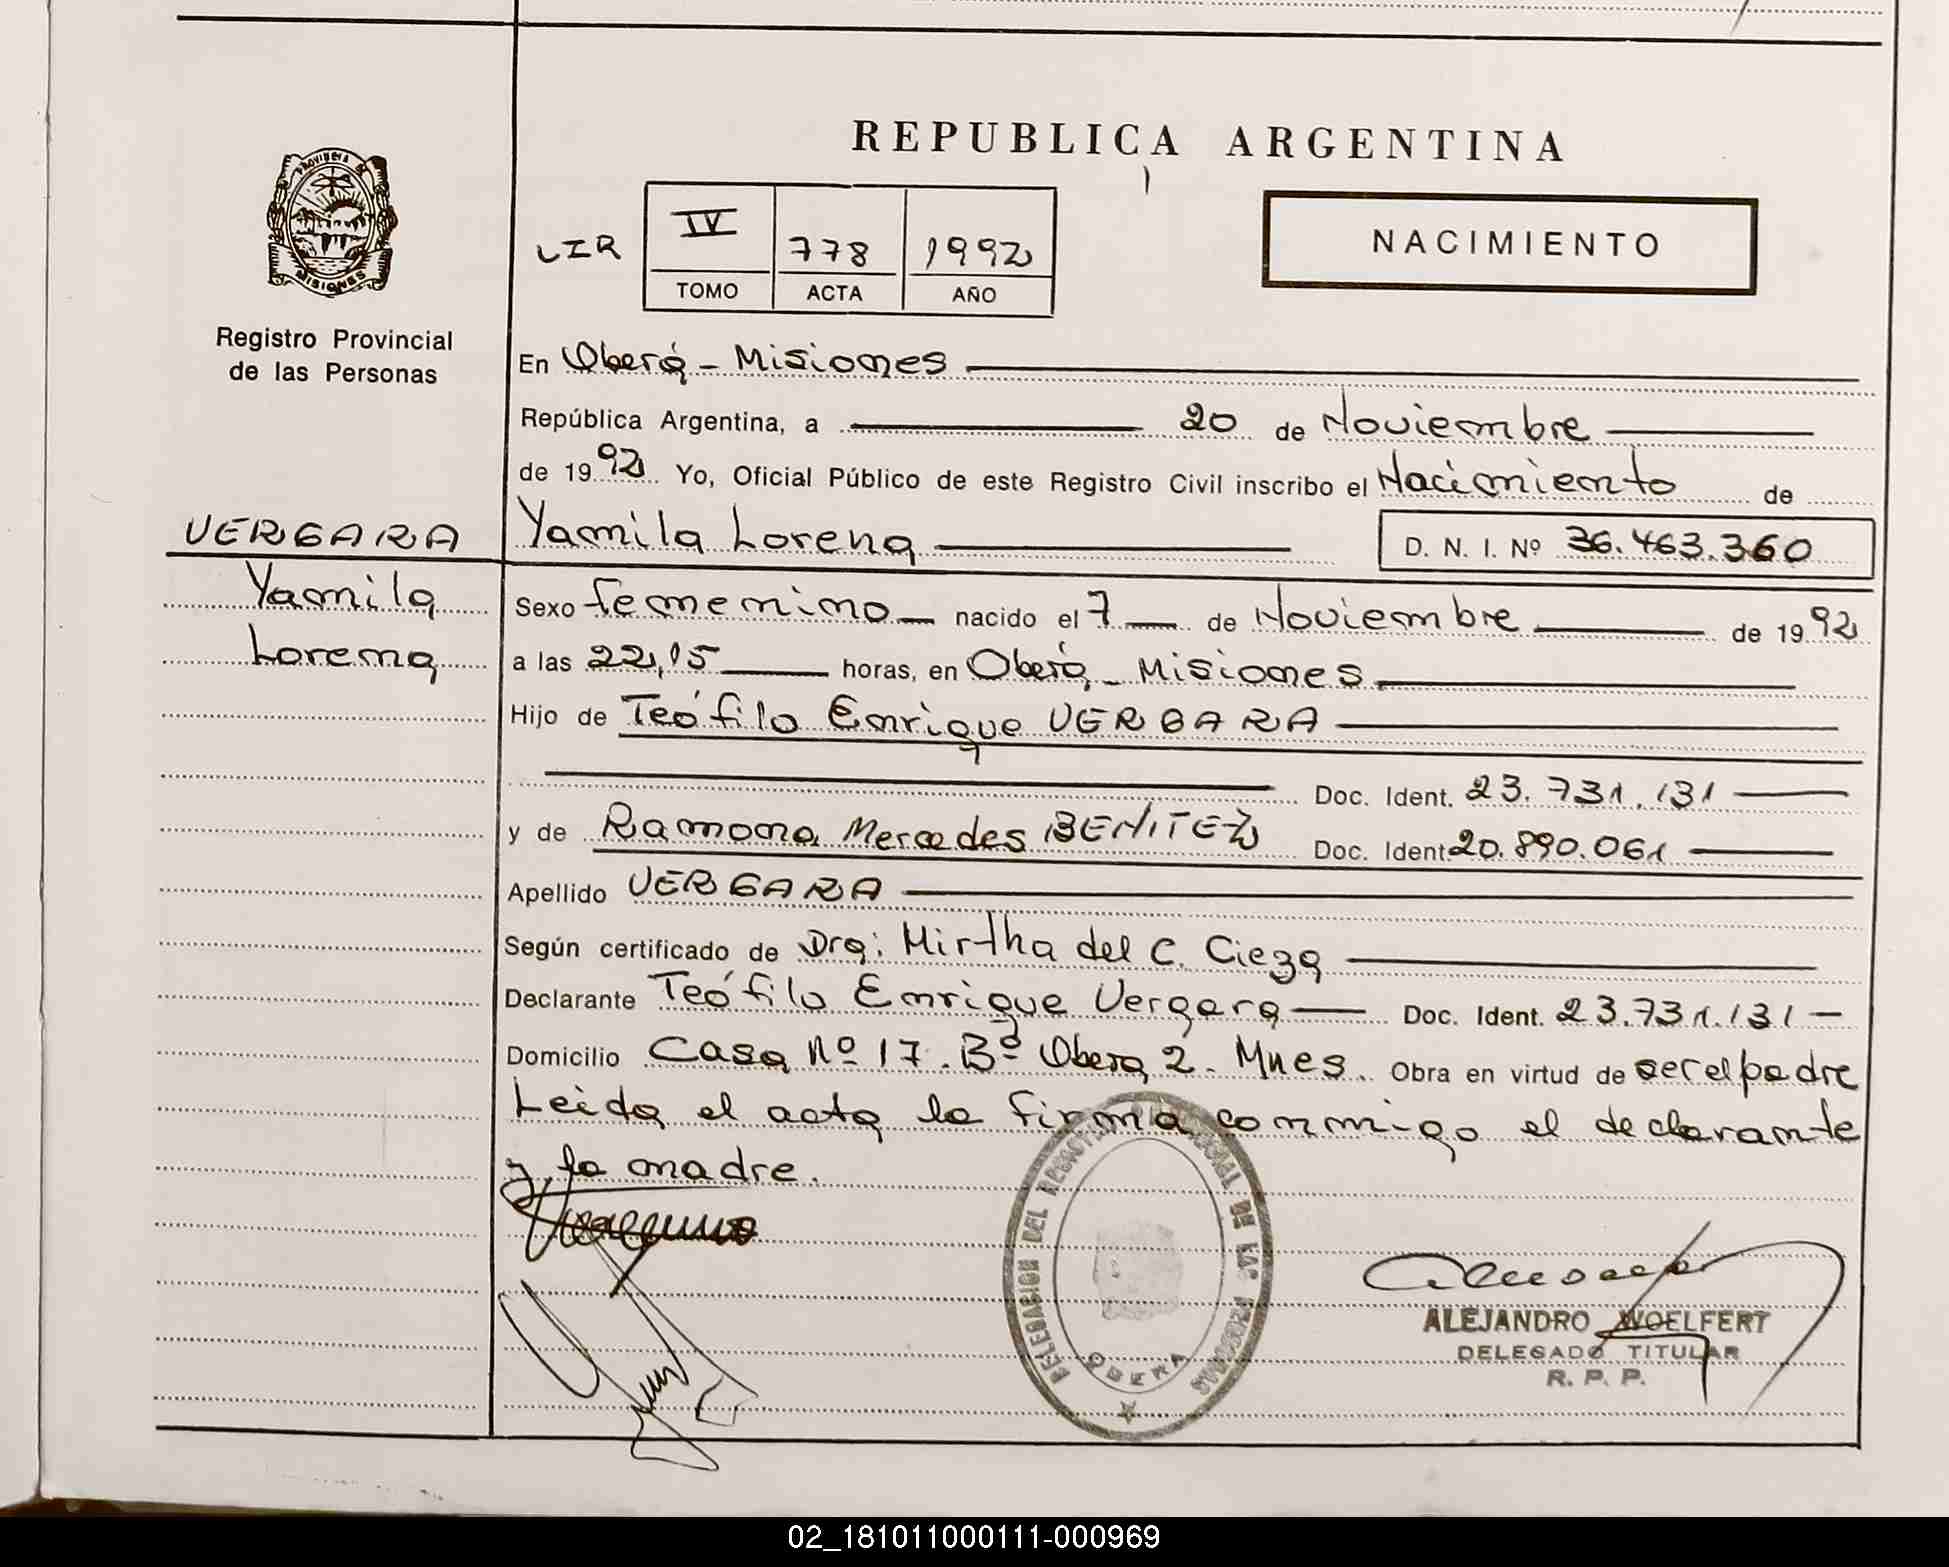 REPUBLICA ARGENTINA
PROVINCIA DE MISIONES
Registro Provincial
de las Personas
LIR
IV 778 1992
TOMO ACTA AÑO
NACIMIENTO
En Oberá - Misiones
República Argentina, a 20 de Noviembre
de 1992 Yo, Oficial Público de este Registro Civil inscribo el Nacimiento de
VERGARA
Yamila Lorena
D. N. I. Nº 36.463.360
Yamila
Lorena
Sexo femenino nacido el 7 de Noviembre de 1992
a las 22,15 horas, en Oberá - Misiones
Hijo de Teófilo Enrique VERGARA
Doc. Ident. 23.731.131
y de Ramona Mercedes BENITEZ Doc. Ident. 20.890.061
Apellido VERGARA
Según certificado de Dra: Mirtha del C. Cieza
Declarante Teófilo Enrique Vergara Doc. Ident. 23.731.131 -
Domicilio Casa Nº 17. Bº Obera 2. Mnes. Obra en virtud de ser el padre
Leida el acta la firma conmigo el declarante
y la madre.
DELEGACION DEL REGISTRO PROVINCIAL DE LAS PERSONAS
OBERA
ALEJANDRO WOELFERT
DELEGADO TITULAR
R. P. P.
02_181011000111-000969